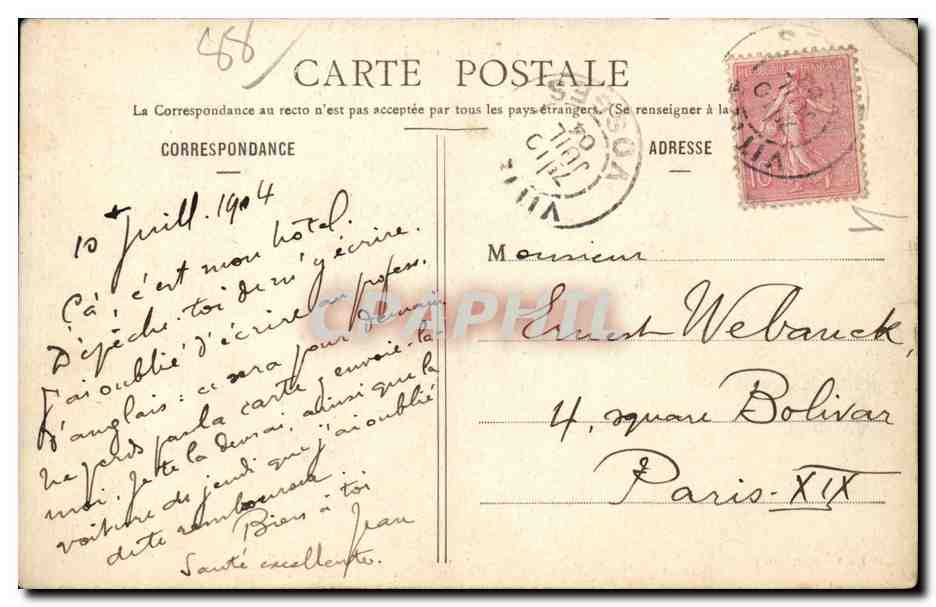 88
CARTE POSTALE
La Correspondance au recto n'est pas acceptée par tous les pays étrangers. (Se renseigner à la
CORRESPONDANCE
ADRESSE
10 Juill. 1904
Çà, c'est mon hôtel.
Dépêche-toi de m'y écrire.
J'ai oublié d'écrire au profess.
d'anglais: ce sera pour demain
Ne perds pas la carte, envoie-la-
moi. Je te la devrai, ainsi que la
voiture de jeudi que j'ai oublié
de te rembourser
Biens à toi
Jean
Santé excellente.
Monsieur
Ernest Webanck,
4, square Bolivar
Paris-XIX
VOSGES
JUIL
04
10
CRAPHIL
1